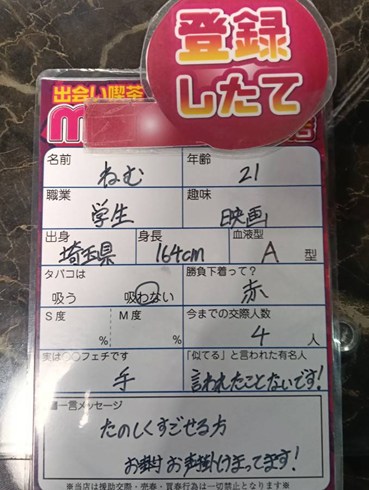 登録
したて
出会い喫茶
m
店
名前 ねむ 年齢 21
職業 学生 趣味 映画
出身 埼玉県 身長 164cm 血液型 A 型
タバコは 吸う 吸わない 勝負下着って? 赤
S度 % M度 % 今までの交際人数 4 人
実は○○フェチです 手 「似てる」と言われた有名人 言われたことないです!
■一言メッセージ
たのしくすごせる方
お声掛けまってます!
※当店は援助交際・売春・買春行為は一切禁止となります※